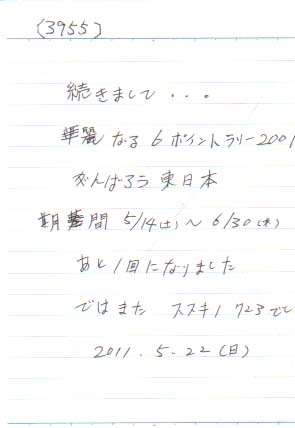 (3955)
続きまして...
華麗なる6ポイントラリー2001
がんばろう東日本
期間 5/14(土)～6/30(木)
あと1回になりました
ではまた スズキ1723でし
2011.5.22(日)